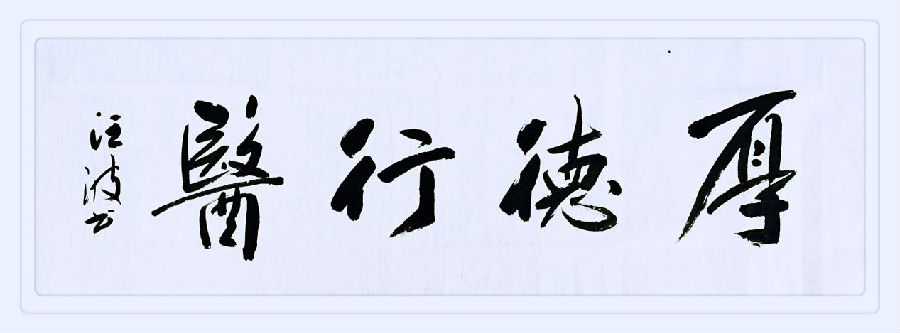 厚德行醫
汪波书